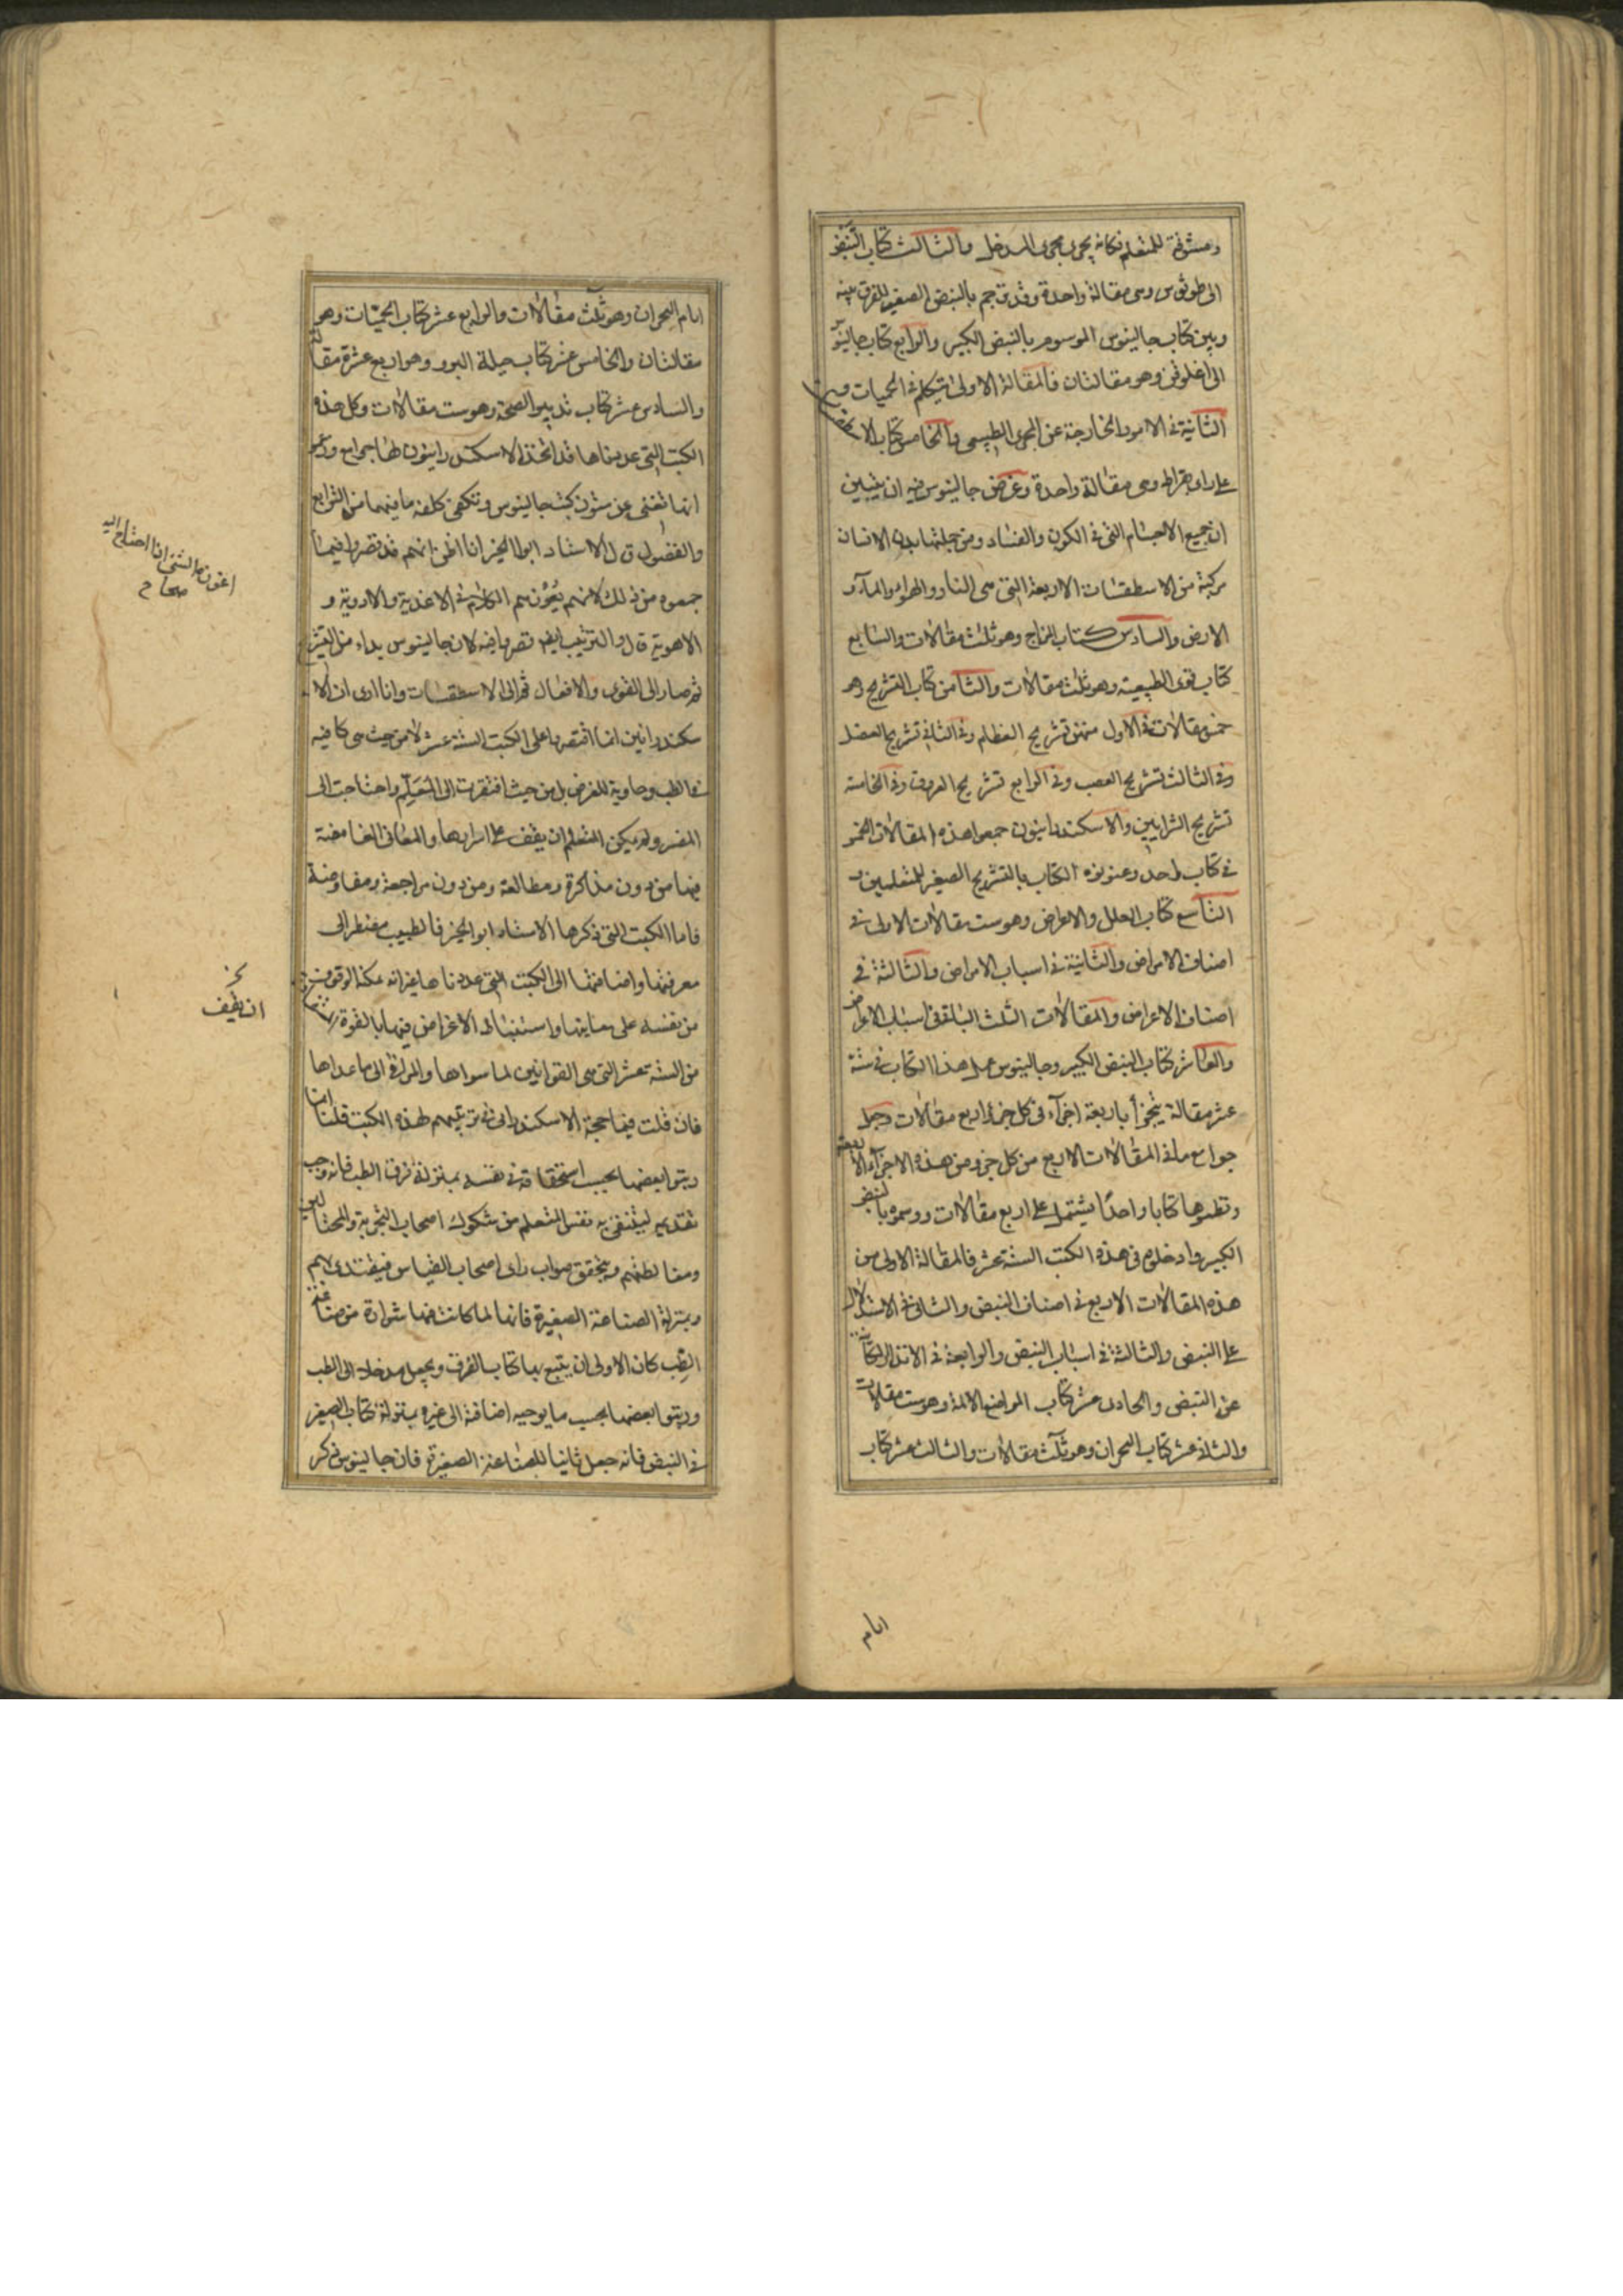 ومشوقة للمتعلم فكانه يجرى مجرى المدخل والثالث كتاب النبض
الى طوثرس وهى مقالة واحدة وقد ترجم بالنبض الصغير للفرق بينه
وبين كتاب جالينوس الموسوم بالنبض الكبير والرابع كتاب جالينوس
الى اغلوقن وهو مقالتان فالمقالة الاولى يتكلم فى الحميات وفى
الثانية فى الامور الخارجة عن المجرى الطبيعى والخامس كتاب الاسطقسات
على راى بقراط وهى مقالة واحدة وغرض جالينوس فيه ان يتبين
ان جميع الاجسام التى فى الكون والفساد ومن جملتها بدن الانسان
مركبة من الاسطقسات الاربعة التى هى النار والهواء والمآء و
الارض والسادس كتاب المزاج وهو ثلث مقالات والسابع
كتاب قوى الطبيعية وهو ثلث مقالات والثامن كتاب التشريح وهو
خمس مقالات فى الاول منهن تشريح العظام وفى الثانى تشريح العضل
وفى الثالث تشريح العصب وفى الرابع تشريح العروق وفى الخامسة
تشريح الشرايين والاسكندرانيون جمعوا هذه المقالات الخمس
فى كتاب واحد وعنونوه الكتاب بالتشريح الصغير للمتعلمين و
التاسع كتاب العلل والاعراض وهو ست مقالات الاولى فى
اصناف الامراض والثانية فى اسباب الامراض والثالثة فى
اصناف الاعراض والمقالات الثلث الباقية فى اسباب الاعراض
والعاشر كتاب النبض الكبير وجالينوس عمل هذا الكتاب فى ستة
عشر مقالة يتجزأ باربعة اجزآء فى كل جزء اربع مقالات وجعل
جوامع ما فى المقالات الاربع من كل جزو من هذه الاجزآء الاربعة
ونظموها كتابا واحدًا يشتمل على اربع مقالات ورسموه بالنبض
الكبير وادخلوه فى هذه الكتب الستة عشر فالمقالة الاولى من
هذه المقالات الاربع فى اصناف النبض والثانى فى الاستدلال
على النبض والثالثة فى اسباب النبض والرابعة فى الانذار الكآئن
عن النبض والحادى عشر كتاب المواضع الآلمة وهو ست مقالات
والثانى عشر كتاب البحران وهو ثلث مقالات والثالث عشر كتاب
ايام
ايام البحران وهو ثلث مقالات والرابع عشر كتاب الحميّات وهو
مقالتان والخامس عشر كتاب حيلة البرو وهو اربع عشرة مقالة
والسادس عشر كتاب تدبير الصحة وهو ست مقالات وكل هذه
الكتب التى عددناها قد اتخذ الاسكندرانيون لها جوامع وزعموا
انها تغنى عن متون كتب جالينوس وتكفى كلفة ما فيها من التوابع
والفضول قال الاستاد ابو الخير انا اظن انهم قد قصروا فيما
جمعوه من ذلك لانهم يُعْوزهم الكلام فى الاغذية والادوية و
الاهوية قال والترتيب ايضا قصروا فيه لان جالينوس بداء من التشريح
ثم صار الى القوى والافعال ثم الى الاسطقسات وانا ارى ان الا
سكندرانيين انما اقتصروا على الكتب الستة عشر لا من حيث هى كافية
فى الطب وحاوية للغرض بل من حيث افتقرت الى المعَلِّم واحتاجت الى
المفسر ولم يمكن المتعلم ان يقف على اسرارها والمعانى الغامضة
فيها من دون مذاكرة ومطالعة ومن دون مراجعة ومفاوضة
فاما الكتب التى ذكرها الاستاد ابو الخير فالطبيب مضطر الى
معرفتها واضافتها الى الكتب التى عددناها غير انه يمكنه الوقوف
من نفسه على معانيها واستنباط الاغراض فيها بالقوة
من الستة عشر التى هى القوانين لما سواها والمراقى الى ما عداها
فان قلت فما حجة الاسكندرانى فى ترتيبهم لهذه الكتب قلنا انهم
رتبوا بعضها بحسب استحقاقه فى نفسه بمنزلة فرق الطب فانه وجب
تقديمه لتنقى به نفس المتعلم من شكوك اصحاب التجربة والمحتالين
ومغالطتهم ويتحقق صواب راى اصحاب القياس فيقتدى بهم
وبمنزلة الصناعة الصغيرة فانها لما كانت فيها شرارة من صناعة
الطِب كان الاولى ان يتبع بها كتاب الفرق ويجعل مدخلا الى الطب
ورتبوا بعضها بحسب ما يوجبه اضافته الى غيره بمنزلة كتاب الصغير
فى النبض فانه جعل ثانيا للصناعة الصغيرة فان جالينوس ذكر
اعوزه الشئ اذا احتاج اليه
صحاح
ان يقف